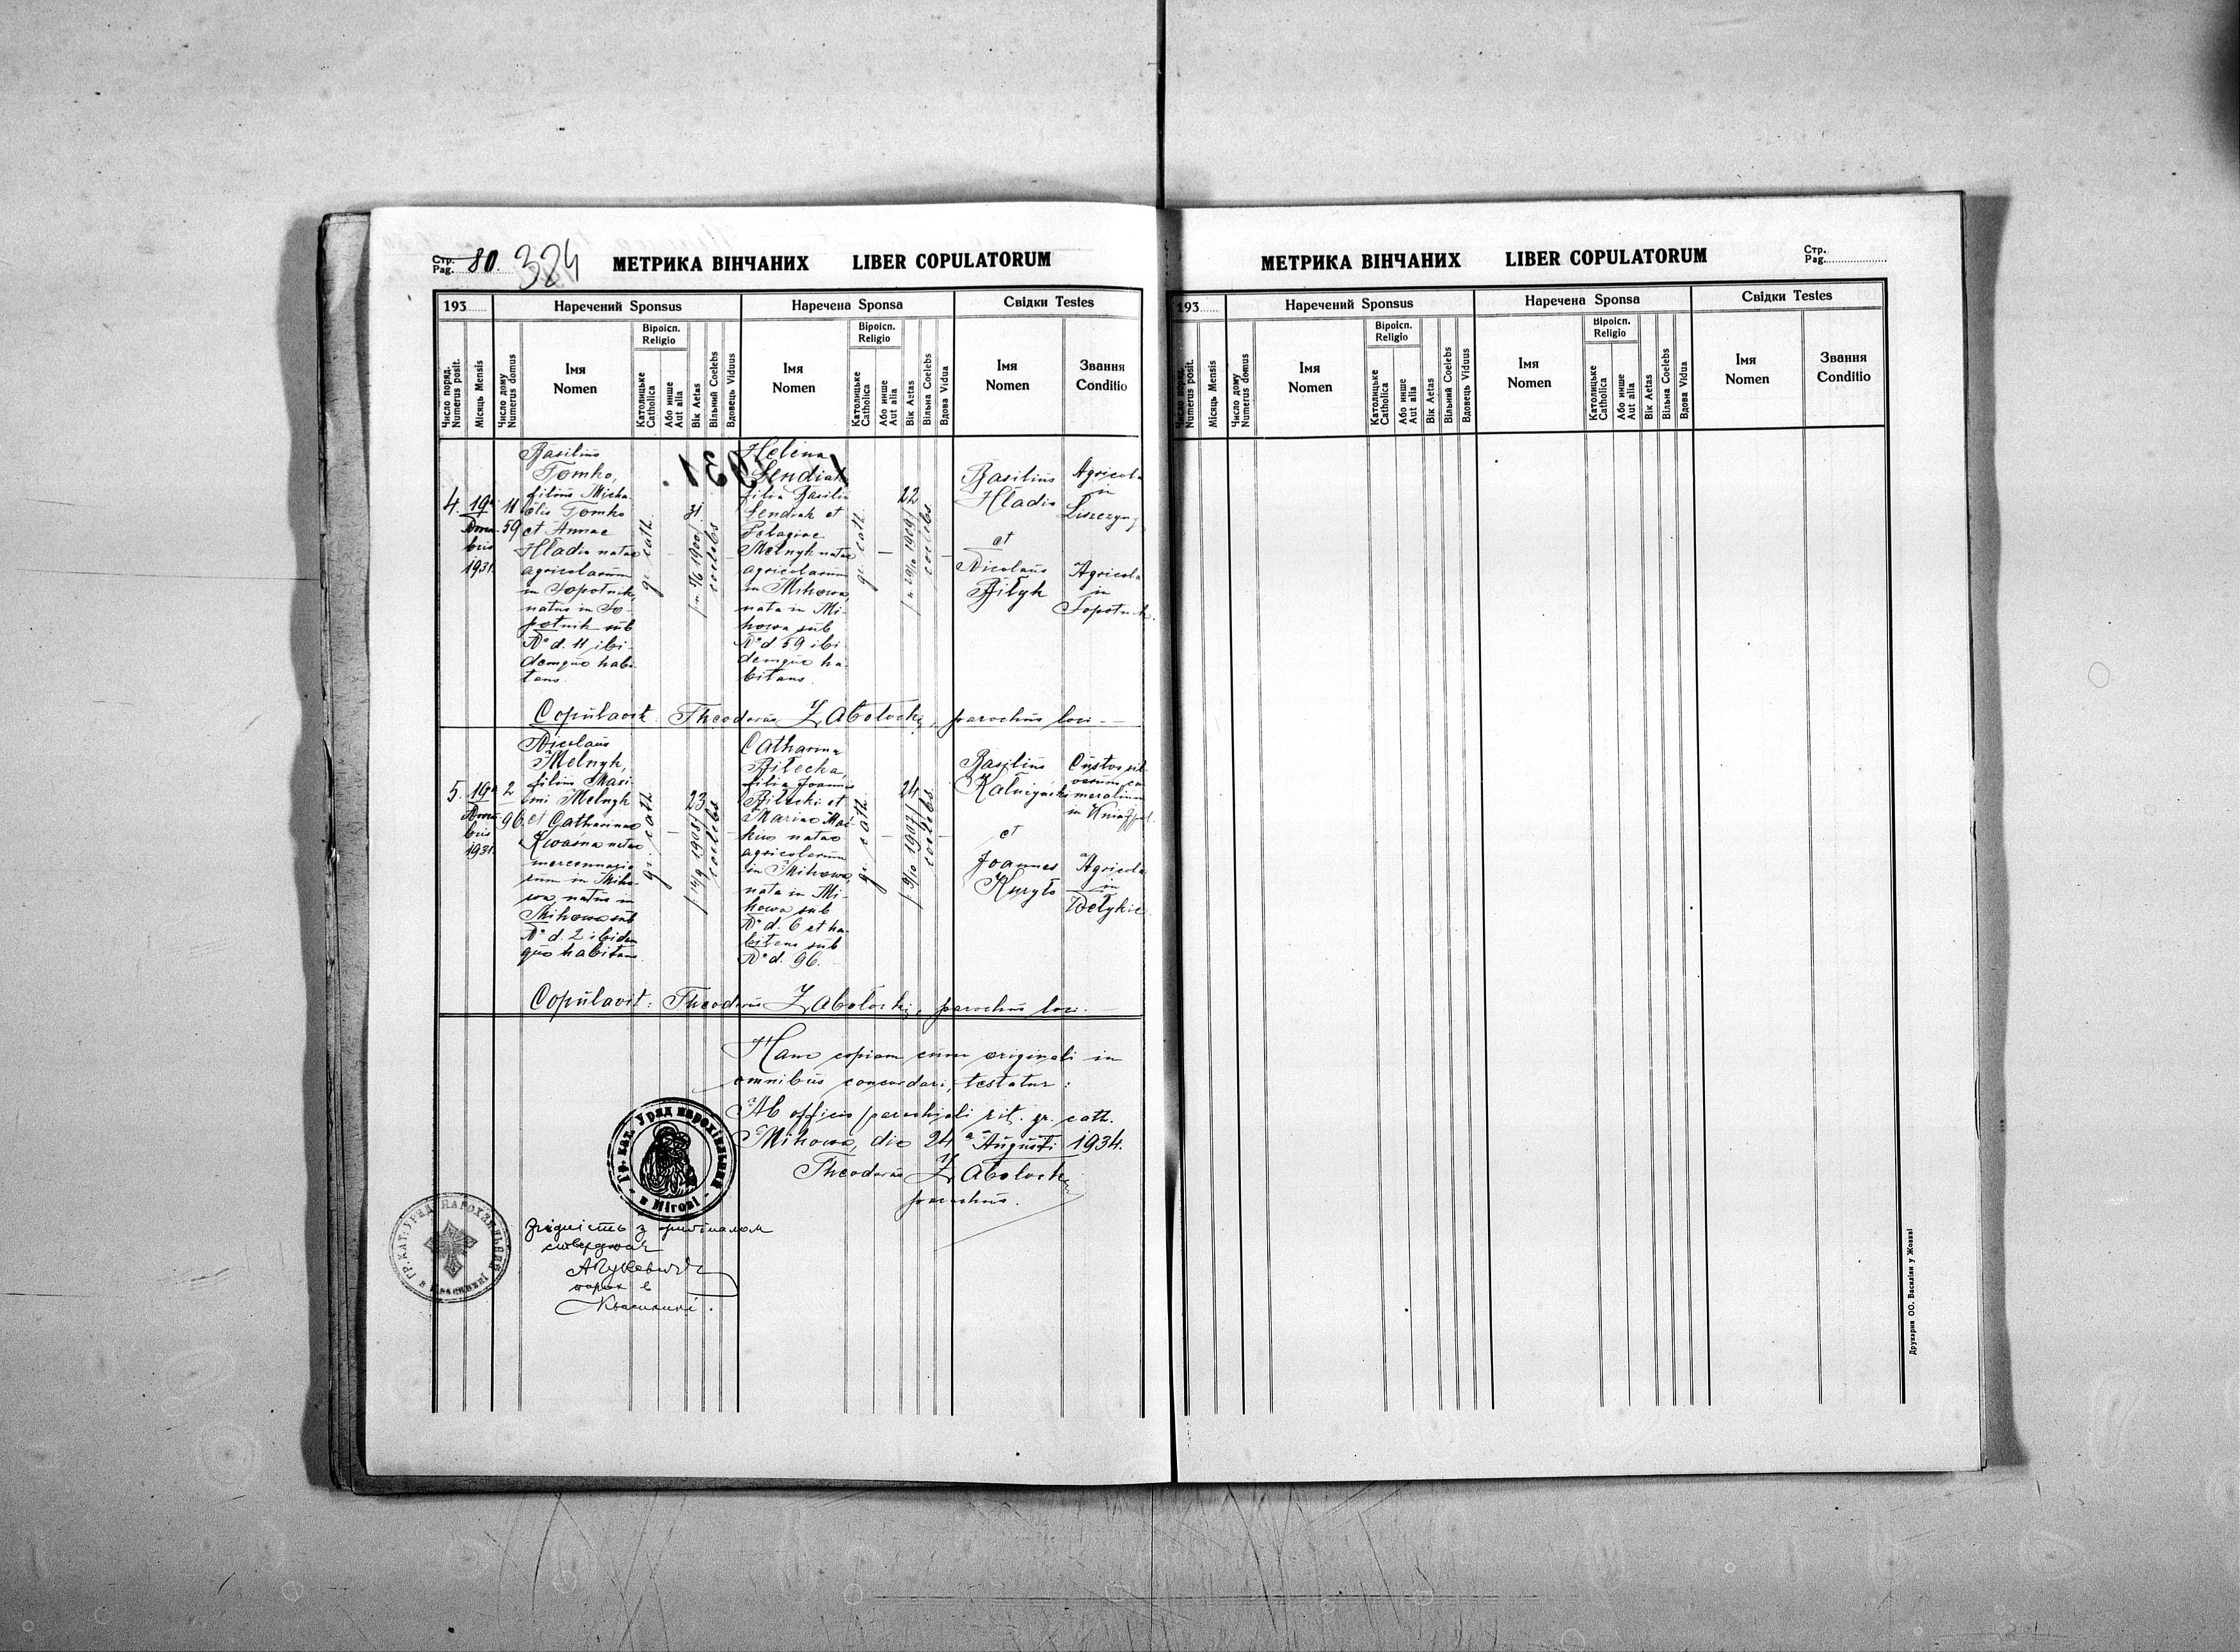 Стр. Pag. 80. 324
МЕТРИКА ВІНЧАНИХ LIBER COPULATORUM
193
Наречений Sponsus
Наречена Sponsa
Свідки Testes
Число поряд. Numerus posit.
Місяць Mensis
Число дому Numerus domus
Імя Nomen
Віроісп. Religio
Католицьке Catholica
Або инше Aut alia
Вік Aetas
Вільний Coelebs
Вдовець Viduus
Імя Nomen
Віроісп. Religio
Католицьке Catholica
Або инше Aut alia
Вік Aetas
Вільна Coelebs
Вдова Vidua
Імя Nomen
Звання Conditio
1931.
4.
19a
1931.
11
59
Basilius
Tomko,
filius Micha-
elis Tomko
et Annae
Hladio natae
agricolarum
in Sopotnik,
natus in So-
potnik sub
N° d. 11 ibi-
demque habi-
tans.
gr. cath.
31
coelebs
Helena
Lendiak
filia Basilii
Lendiak et
Pelagiae
Melnyk natae
agricolarum
in Mihowa,
nata in Mi-
howa sub
N° d. 59 ibi-
demque ha-
bitans.
gr. cath.
22
coelebs
Basilius
Hladio
et
Nicolaus
Biłyk
Agricola
in
Agricola
in
Sopotnik.
Copulavit: Theodorus Zabołocki, parochus loci.
5.
19a
1931.
2
96
Nicolaus
Melnyk,
filius Maxi-
mi Melnyk
et Catharinae
Kwasna natae
mercennario-
rum in Miho-
wa, natus in
Mihowa sub
N° d. 2 ibidem-
que habitans.
gr. cath.
23
coelebs
Catharina
Biłecka,
filia Joannis
Biłecki et
Mariae
natae
agricolarum
in Mihowa,
nata in Mi-
howa sub
N° d. 6 et ha-
bitans sub
N° d. 96.
gr. cath.
24
coelebs
Basilius
et
Joannes
Kuryło
Custos sil-
varum ca-
meralium
in
Agricola
in
Copulavit: Theodorus Zabołocki, parochus loci.
Hanc copiam cum originali in
omnibus concordari, testatur:
Ab officio parochiali rit. gr. cath.
Mihowa, die 24a Augusti 1934.
Theodorus Zabołocki
parochus.
Гр. кат. Уряд парохіяльний в Мігові
ГР. КАТ. УРЯД ПАРОХІЯЛЬНИЙ
Згідність з оригіналом
стверджає
парох в
Квасинині.
МЕТРИКА ВІНЧАНИХ LIBER COPULATORUM
Стр. Pag.
193
Наречений Sponsus
Наречена Sponsa
Свідки Testes
Число поряд. Numerus posit.
Місяць Mensis
Число дому Numerus domus
Імя Nomen
Віроісп. Religio
Католицьке Catholica
Або инше Aut alia
Вік Aetas
Вільний Coelebs
Вдовець Viduus
Імя Nomen
Віроісп. Religio
Католицьке Catholica
Або инше Aut alia
Вік Aetas
Вільна Coelebs
Вдова Vidua
Імя Nomen
Звання Conditio
Друкарня ОО. Василіян у Жовкві